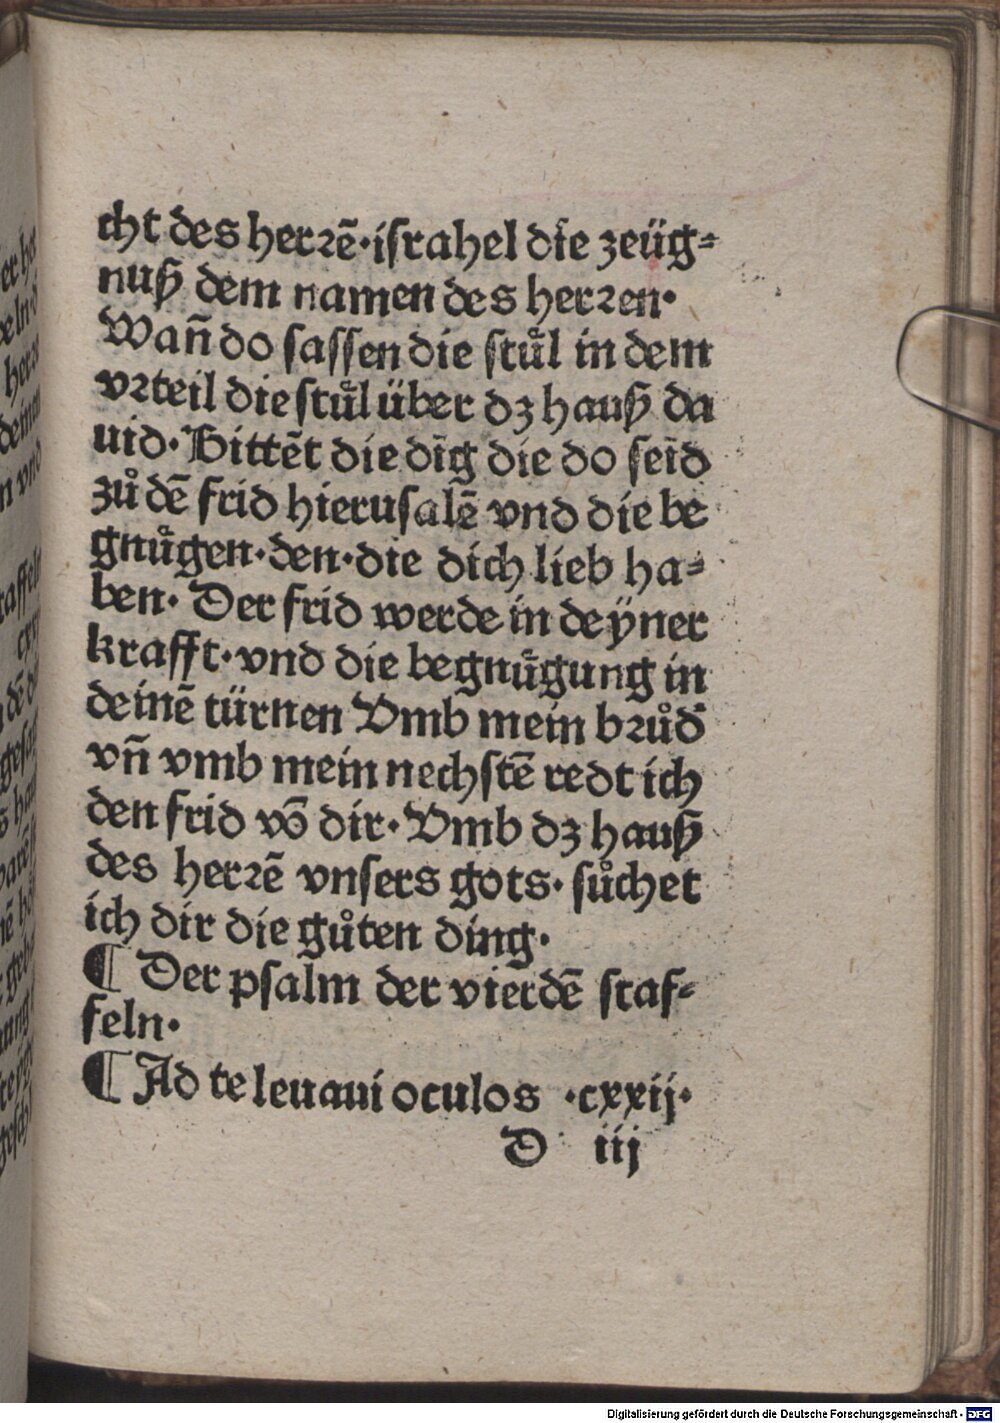 cht des herꝛē·israhel die zeüg⸗
nuß dem namen des herꝛen·
Wan̄ do sassen die stuͤl in dem
vꝛteil die stuͤl über dz hauß da
uid· Bittēt die dīg die do seīd
zů dē frid hierusalē vnd die be
gnuͤgen·den·die dich lieb ha⸗
ben· Der frid werde in deÿner
krafft·vnd die begnuͤgung in
deinē türnen Vmb mein bꝛůd̕
vn̄ vmb mein nechstē redt ich
den frid vō dir·Vmb dz hauß
des herꝛē vnsers gots· sůchet
ich dir die gůten ding·
¶ Der psalm der vierdē staf⸗
feln·
¶ Ad te leuaui oculos ·cxxij·
D iij
Digitalisierung gefördert durch die Deutsche Forschungsgemeinschaft - DFG